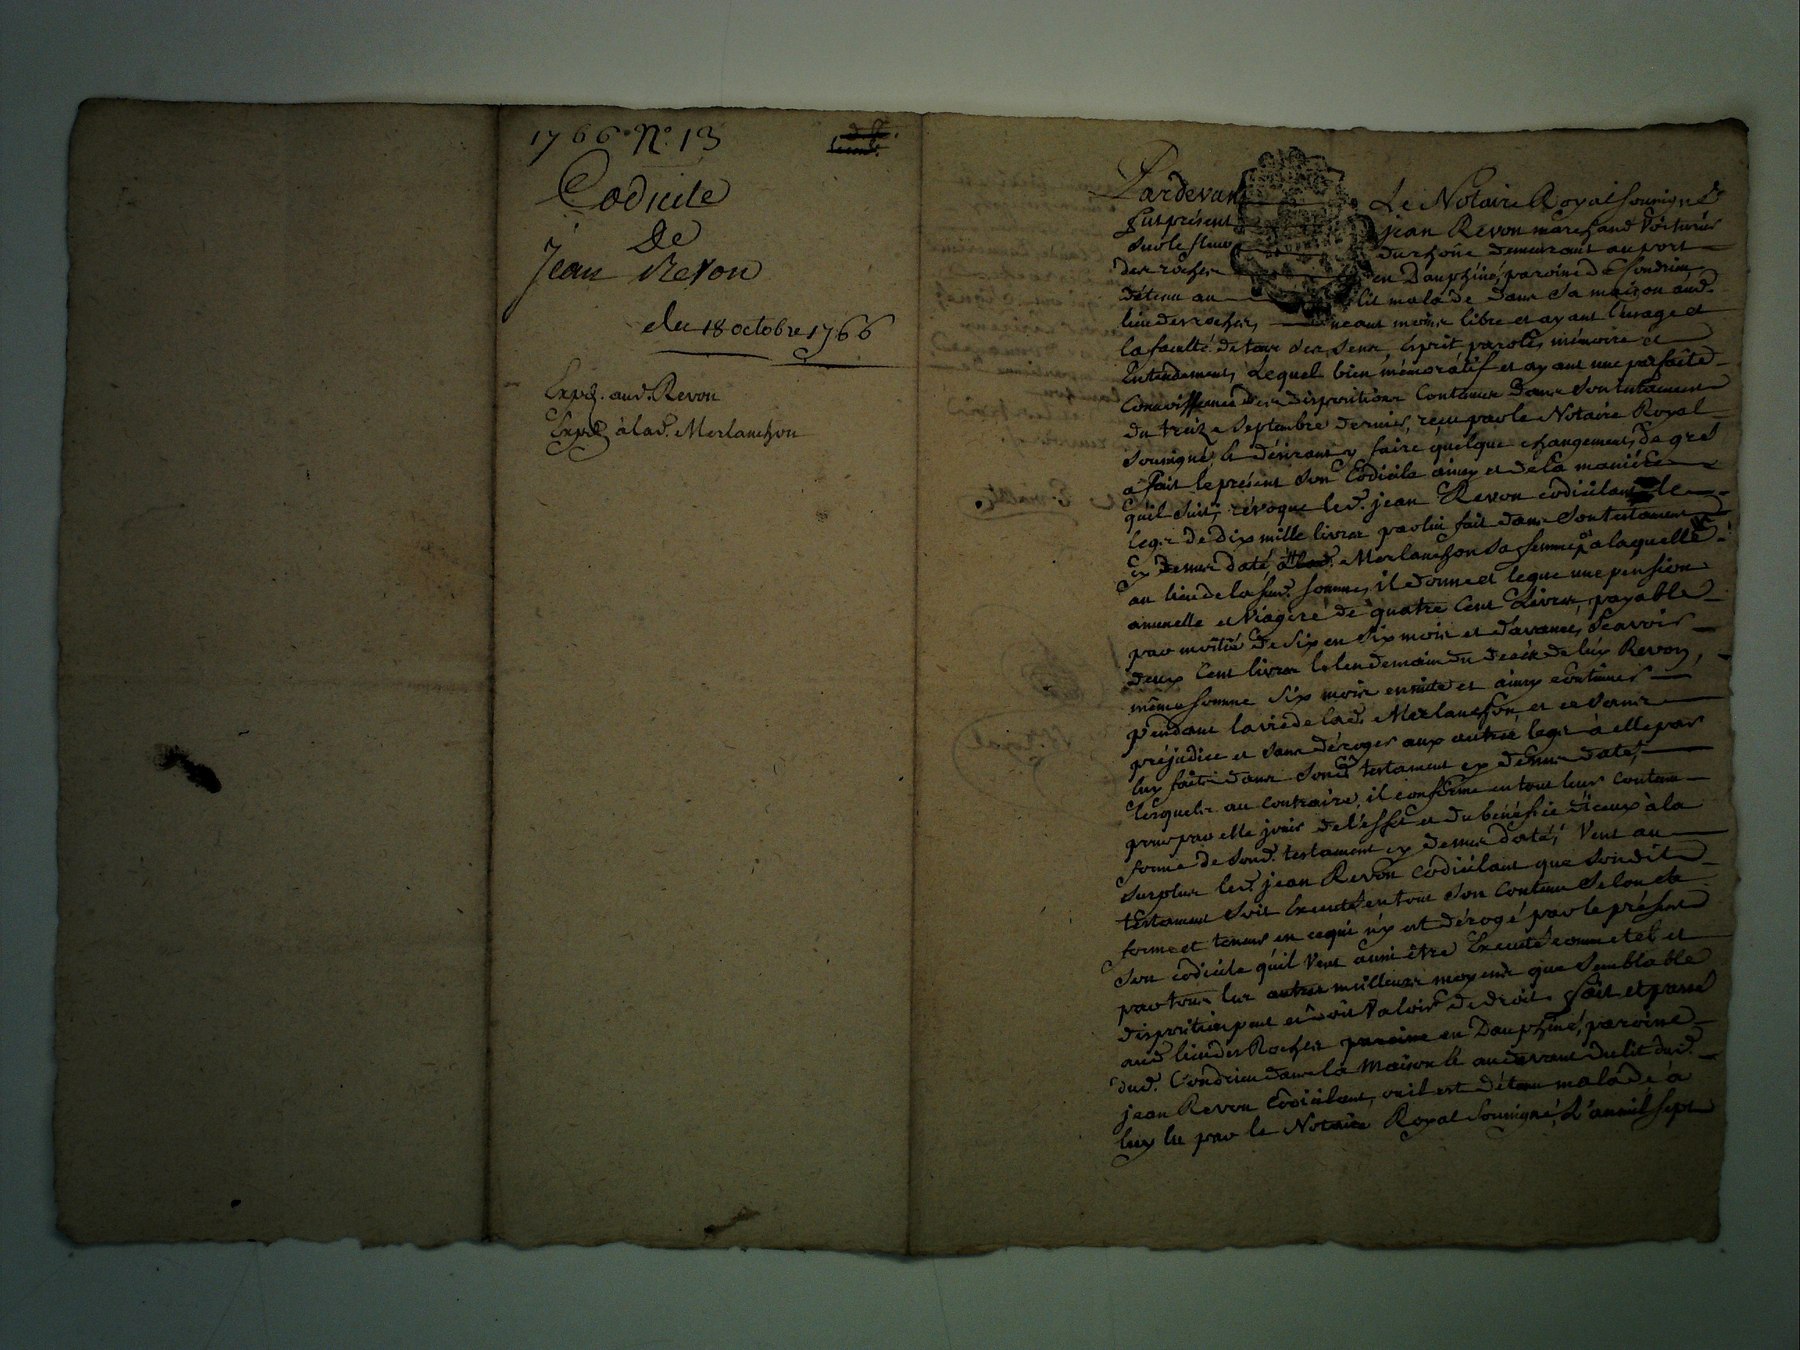 1766 N.º 13
Codicile
De
Jean Revon
du 18 octobre 1766
Exp.é aud. Revon
Exp.é à lad. Merlanchon
Pardevant Le Notaire Royal soussigné
fut présent jean Revon marchand Voiturier
sur le fleuve du rhône demeurant au port
des roches en Dauphiné, paroisse de Condrieu
détenu au lit malade dans sa maison aud.
lieu des roches, neant moins libre et ayant l'usage et
la faculté de tous ses sens, esprit, parole, mémoire et
Entendement, Lequel bien mémoratif et ayant une parfaite
Connoissance des dispositions Contenues Dans Son testament
du treize Septembre dernier, reçu par le Notaire Royal
soussigné, & désirant y faire quelque changement, de gré
a fait le présent son Codicile ainsy et de la manière
qu'il suit; révoque led. jean Revon codicilant le
legs de dix mille livres par lui fait dans son testament
cy dessus daté, à lad. Merlanchon sa femme, a laquelle
au lieu de la sud. somme, il donne et legue une pension
annuelle et Viagère de quatre Cent Livres, payable
par moitié de Six en Six mois et d'avance, Scavoir
deux Cent livres le lendemain du decès de luy Revon,
même somme Six mois ensuite et ainsy continuer
pendant la vie de lad. Merlanchon, et ce sans
préjudice et sans déroger aux autres legs à elle par
luy faits dans sond. testament cy dessus daté,
lesquels au contraire, il confirme en tout leur contenu
pour par elle jouir de l'effet et du bénéfice d'iceux à la
forme de sond. testament cy dessus daté; Veut au
surplus led. jean Revon codicilant que son dit
testament soit Executé en tout son Contenu Selon sa
forme et teneur en ce qui n'y est dérogé par le présent
son codicile qu'il Veut aussi être Executé comme tel et
par tous les autres meilleurs moyens que Semblable
disposition peut et doit Valoir de droit. fait et passé
aud. lieu des Roches en Dauphiné, paroisse
dud. Condrieu dans la Maison & au devant du lit dud.
jean Revon Codicilant, où il est détenu malade à
luy lu par le Notaire Royal soussigné, L'an mil sept